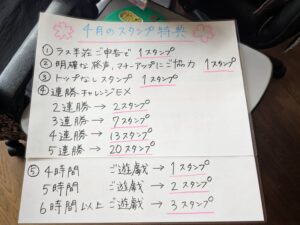 4月のスタンプ特典
① ラス半荘ご申告で 1スタンプ
② 明確な発声、マナーアップにご協力 1スタンプ
③ トップなしスタンプ 1スタンプ
④ 連勝チャレンジEX
2連勝 → 2スタンプ
3連勝 → 7スタンプ
4連勝 → 13スタンプ
5連勝 → 20スタンプ
⑤ 4時間 ご遊戯 → 1スタンプ
5時間 ご遊戯 → 2スタンプ
6時間以上ご遊戯 → 3スタンプ